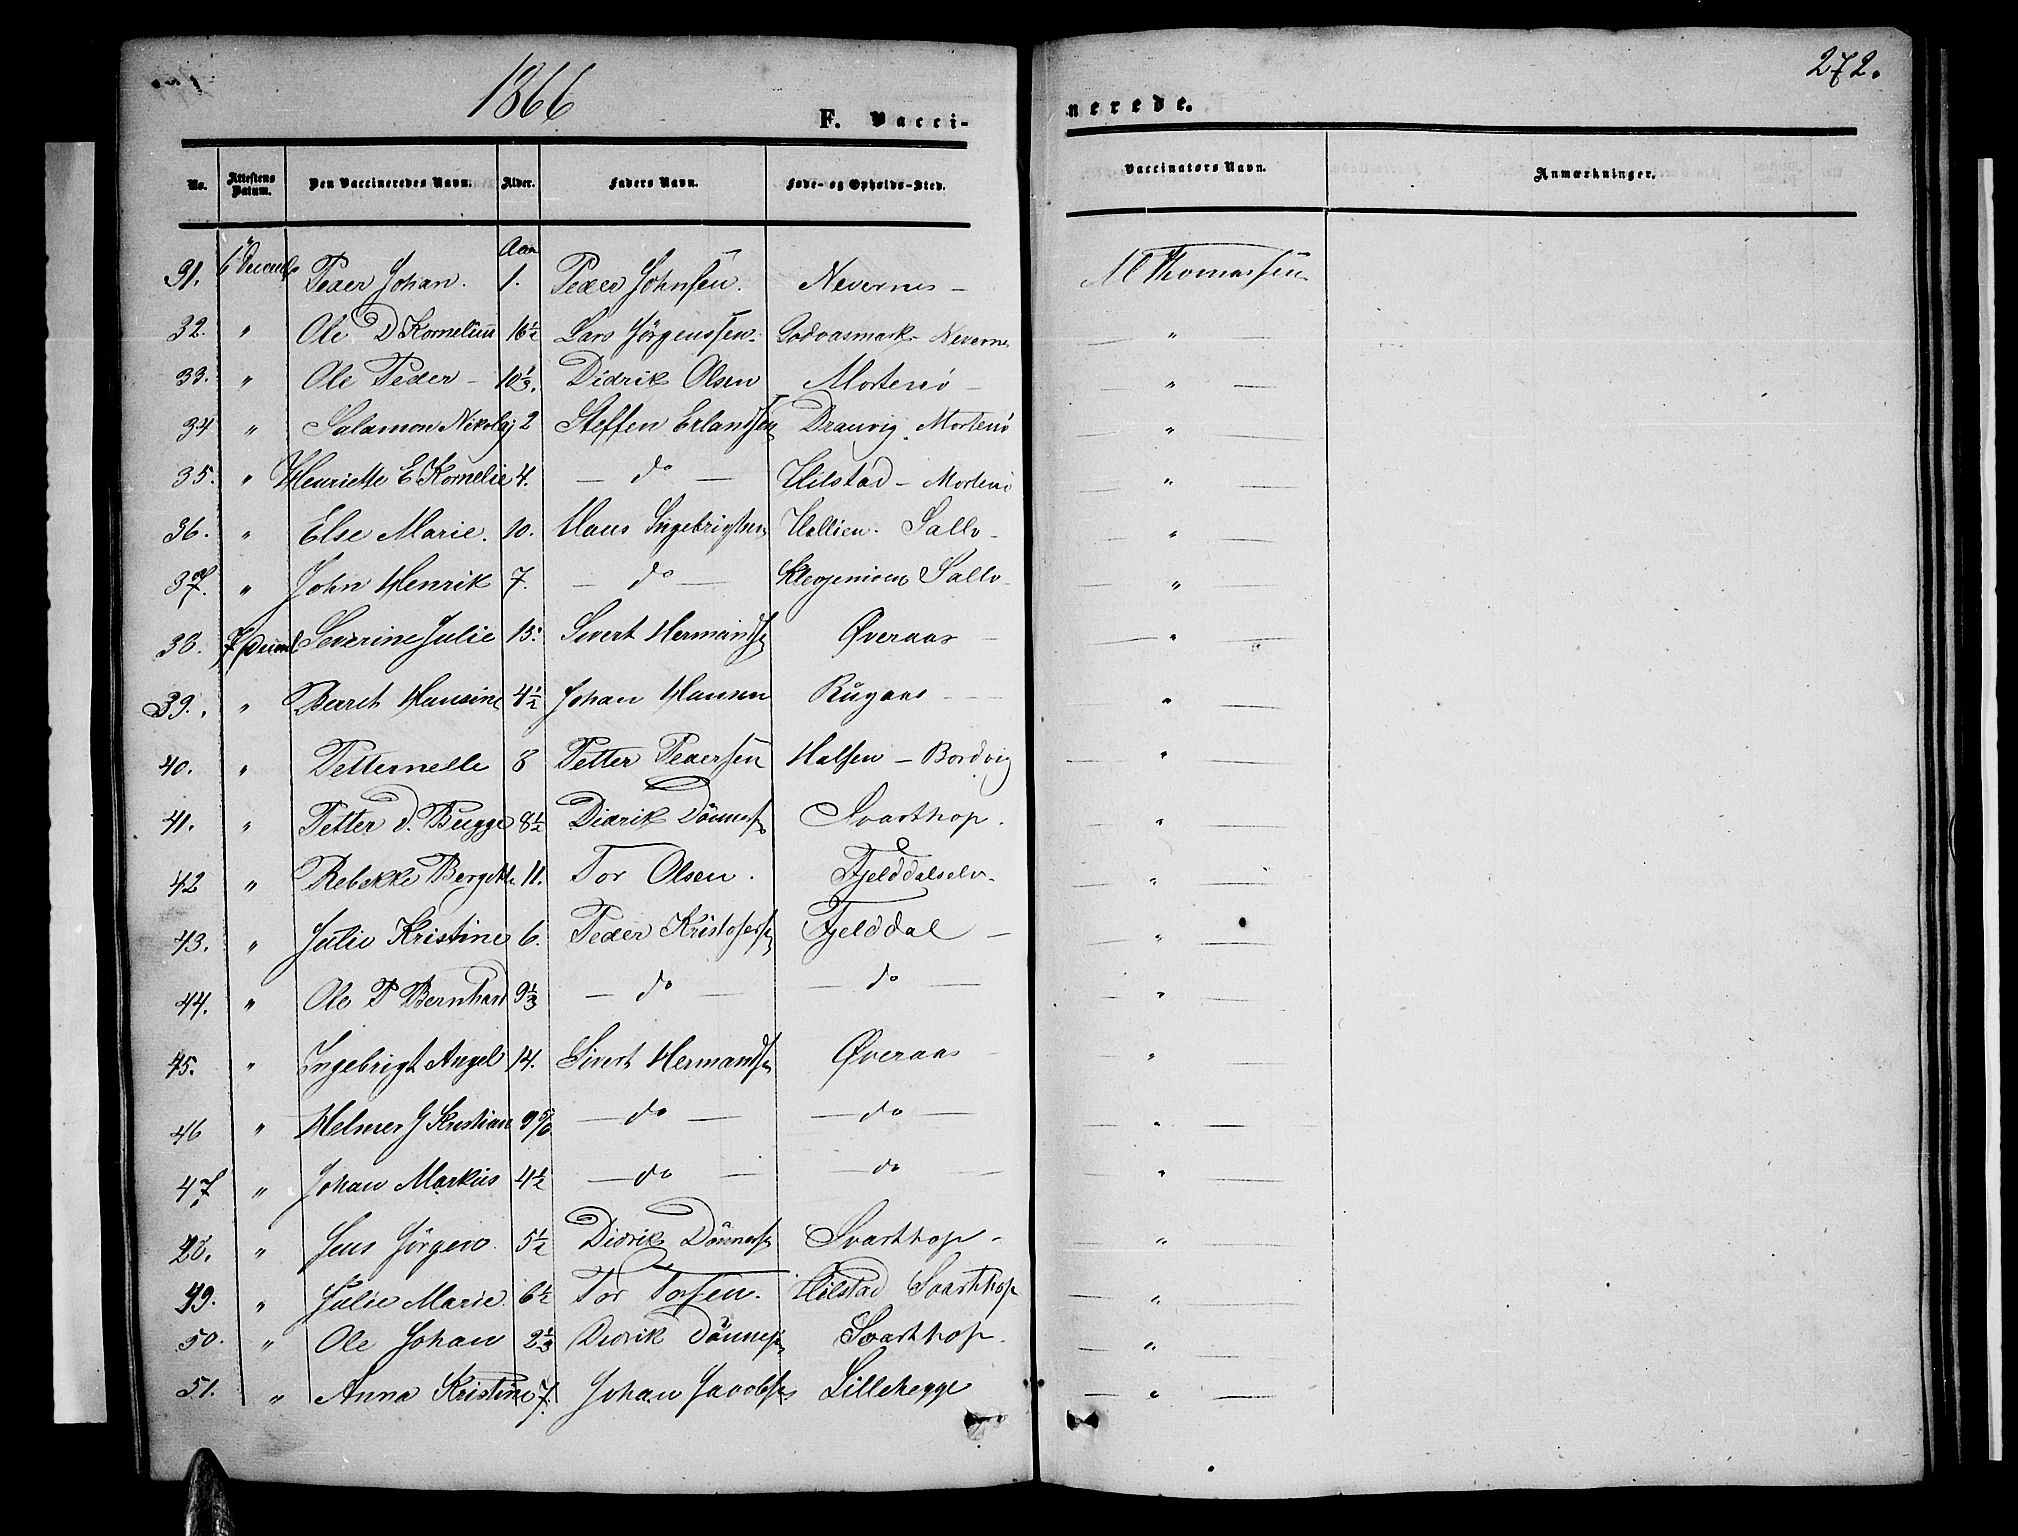 1866
272.
F. Vacci-
nerede.
No. Attestens Datum. Den Vaccineredes Navn. Alder. Faders Navn. Føde- og Opholds-Sted. Vaccinators Navn. Anmærkninger.
31. 6 Decemb Peder Johan. Aar 1. Peder Johnsen. Nevernes — M Thomassen
32. " Ole D Kornelius 16½ Lars Jörgenssen. Godvasmark - Nevernes — " —
33. " Ole Peder — 10⅓. Didrik Olsen Mortenö — — " —
34 " Salamon Nikolaj 2 Steffen Erlandsen Drauvig. Mortenö — " —
35. " Henriette E Kornelie 4. — do — Hilstad — Mortenö — " —
36. " Else Marie. 10. Hans Ingebrigtsen Hellien. Sallv — " —
37. " John Henrik 7. — do — Klevjemoen Sallv — "
38. 7 Decemb Severine Julie 15. Sivert Hermands Øveraas — — " —
39. " Beret Hansine 4½ Johan Hansen Rugaas — — " —
40. " Petternelle 8 Petter Pedersen Halsen — Bordvig — " —
41. " Petter d. Bugge 8½ Didrik Dönness Svarthop. — " —
42 " Rebekke Bergitte 11. Tor Olsen. Fjelddalselv — " —
43. " Julie Kristine 6. Peder Kristofers Fjelddal — — " —
44. " Ole P Bernhard 9⅓ — do — — do — — " —
45. " Ingebrigt Angel 14. Sivert Hermands Øveraas — — " —
46 " Helmer G Kristian 9 5/6 — do — — do — — " —
47. " Johan Markus 4½ — do — — do — — " —
48. " Jens Jörgen 5½ Didrik Dönness Svarthop — — " —
49. " Julie Marie. 6½ Tor Torsen. Hilstad Svarthop — " —
50. " Ole Johan 2⅓ Didrik Dönnes Svarthop. — " —
51. " Anna Kristine 7. Johan Jacobs Lillehegge — " —